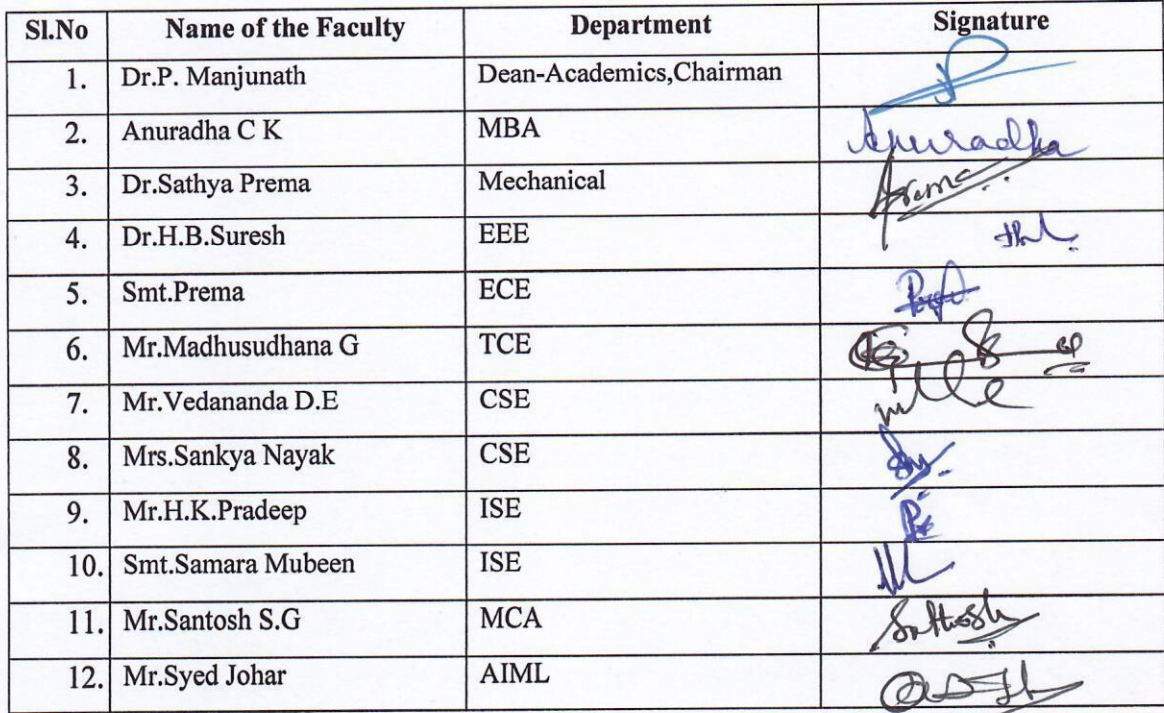 Sl.No Name of the Faculty Department Signature
1. Dr.P. Manjunath Dean-Academics,Chairman
2. Anuradha C K MBA Anuradha
3. Dr.Sathya Prema Mechanical Prema
4. Dr.H.B.Suresh EEE
5. Smt.Prema ECE
6. Mr.Madhusudhana G TCE
7. Mr.Vedananda D.E CSE
8. Mrs.Sankya Nayak CSE
9. Mr.H.K.Pradeep ISE
10. Smt.Samara Mubeen ISE
11. Mr.Santosh S.G MCA
12. Mr.Syed Johar AIML